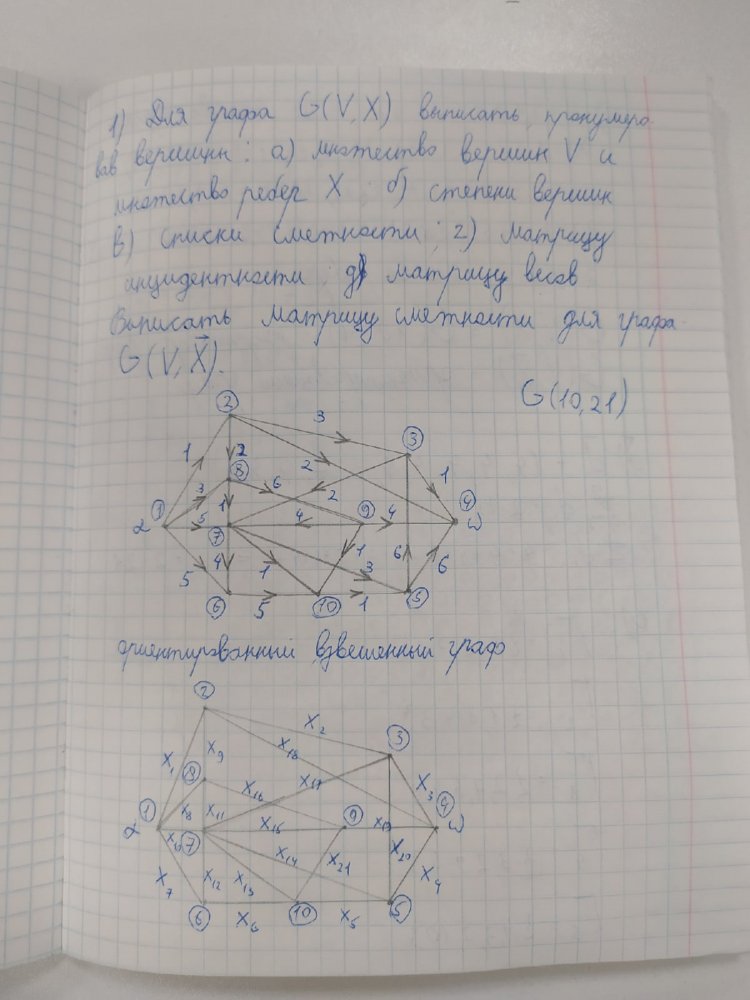 1) Для графа G(V,X) выписать, пронумеро
вав вершины: а) множество вершин V и
множество ребер X; б) степени вершин
в) списки смежности; г) матрицу
инцидентности; д) матрицу весов
Выписать матрицу смежности для графа
G(V,X⃗).
G(10,21)
2
3
3
1
2
8
2
1
1
3
6
2
9
4
α
5
7
1
4
4
ω
5
4
1
1
3
6
6
6
5
10
1
5
ориентированный взвешенный граф
2
X₂
3
X₁
X₉
X₁₈
8
X₁₇
X₃
1
X₁₆
9
4
α
X₈
X₁₁
X₁₅
X₁₉
ω
X₁₀
7
X₁₄
X₂₁
X₂₀
X₇
X₁₂
X₁₃
X₄
6
X₆
10
X₅
5